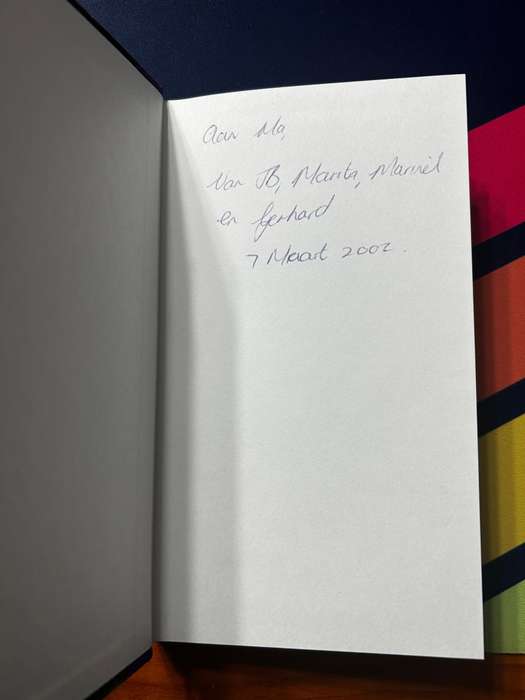 Aan Ma,
Van JB, Marita, Marinél
en Gerhard
7 Maart 2002.